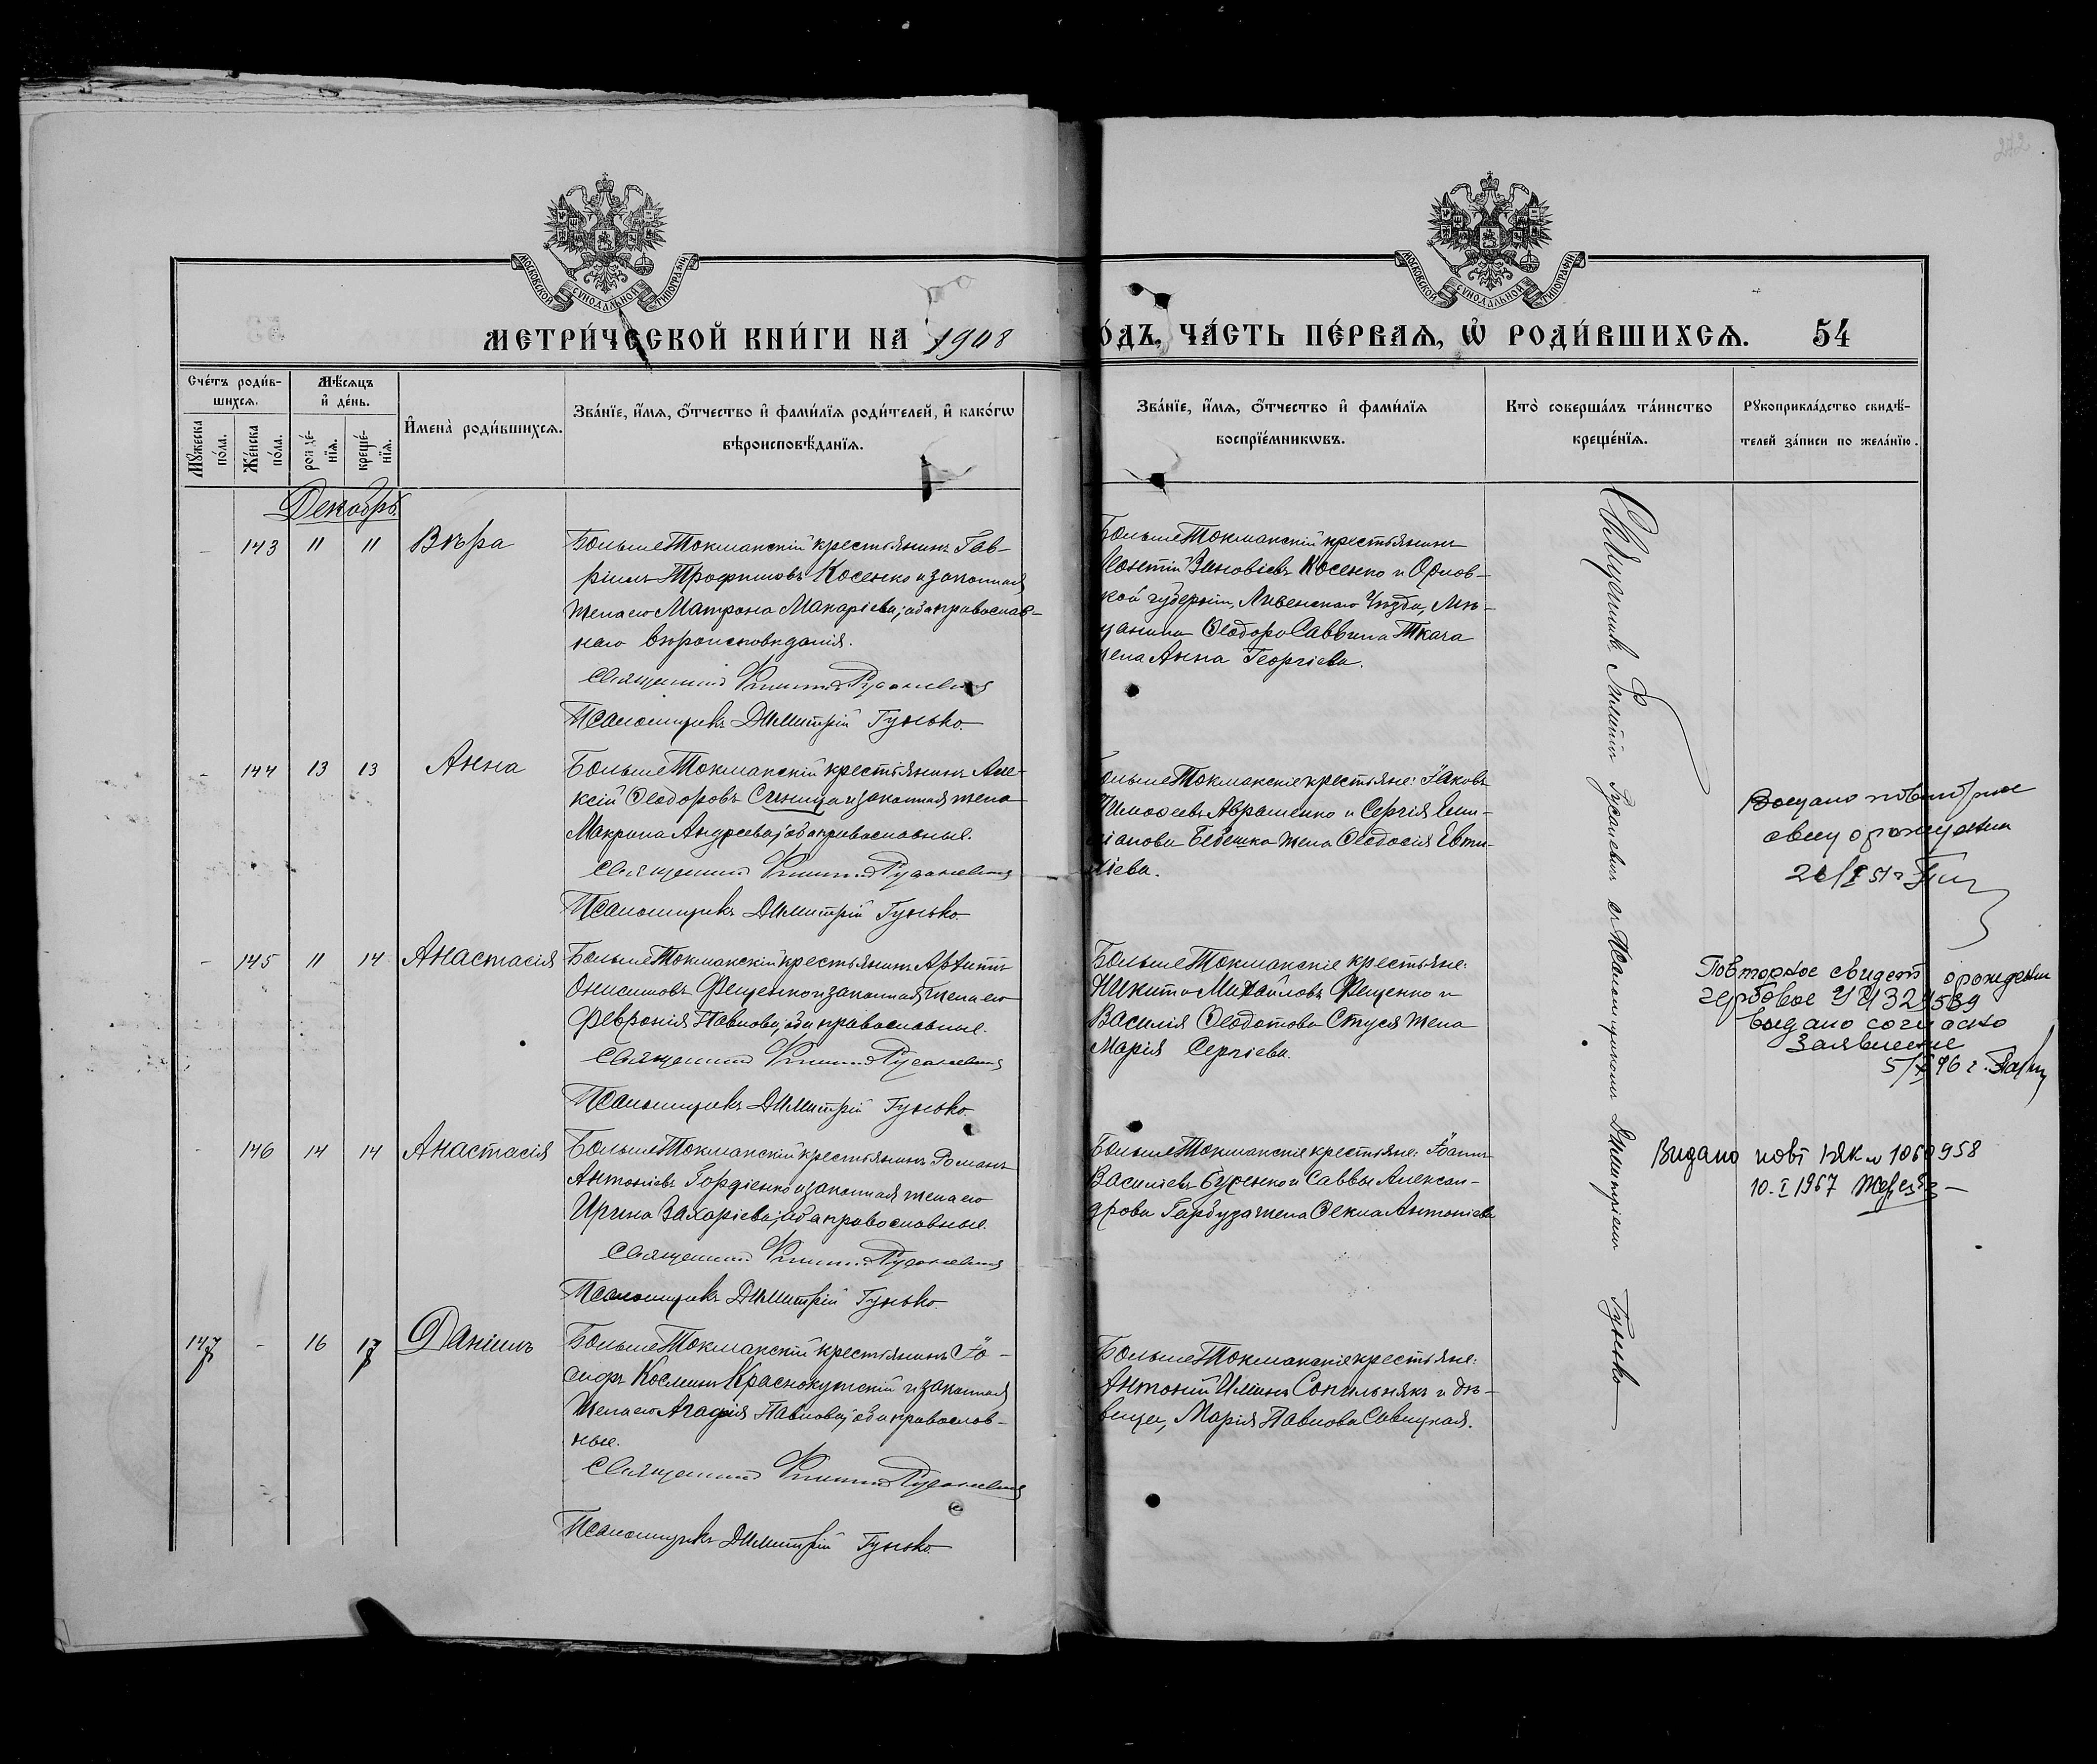 272
МОСКОВСКОЙ СУНОДАЛЬНОЙ ТИПОГРАФІИ
МОСКОВСКОЙ СУНОДАЛЬНОЙ ТИПОГРАФІИ
МЕТРИ́ЧЕСКОЙ КНИ́ГИ НА 1908
ОДЪ, ЧА́СТЬ ПЕ́РВАѦ, Ѡ҆ РОДИ́ВШИХСѦ. 54
Сче́тъ роди́в-
шихсѧ.
Мꙋ́жеска по́ла.
Же́нска по́ла.
Мѣ́сѧцъ
и҆ де́нь.
рожде́-
нїѧ.
креще́-
нїѧ.
И҆мена̀ роди́вшихсѧ.
Зва́нїе, и҆́мѧ, ѻ҆́тчество и҆ фами́лїѧ роди́телей, и҆ како́гѡ
вѣроисповѣ́данїѧ.
Зва́нїе, и҆́мѧ, ѻ҆́тчество и҆ фами́лїѧ
воспрїе́мникѡвъ.
Кто̀ соверша́лъ та́инство
креще́нїѧ.
Рꙋкоприкла́дство свидѣ́-
телей за́писи по жела́нїю.
Декабрь.
- 143 11 11 Вѣра
БольшеТокмакскій крестьянинъ Гав-
ріилъ Трофимовъ Косенко и законная
жена его Матрона Макаріева, оба православ-
наго вѣроисповѣданія.
Священникъ Филиппъ Русаневичъ
Псаломщикъ Димитрій Гунько.
БольшеТокмакскій крестьянинъ
Леонтій Зиновіевъ Косенко и Орлов-
кой губерніи, Ливенскаго Уѣзда, Мѣ-
щанина Ѳеодора Саввина Ткача
жена Анна Георгіева.
- 144 13 13 Анна
БольшеТокмакскій крестьянинъ Але-
ксій Ѳеодоровъ Синица и законная жена
Макрина Андреева, оба православные.
Священникъ Филиппъ Русаневичъ
Псаломщикъ Димитрій Гунько.
ольшеТокмакскіе крестьяне: Іаковъ
Тимоѳеевъ Авраменко и Сергія Емил-
іанова Бебешка жена Ѳеодосія Евти-
хіева.
Выдано повторное
свид о рождении
145 11 14 Анастасія
БольшеТокмакскій крестьянинъ Архиппъ
Онисимовъ Фещенко и законная жена его
Февронія Павлова, оба православные.
Священникъ Филиппъ Русаневичъ
Псаломщикъ Димитрій Гунько.
БольшеТокмакскіе крестьяне:
Никита Михайловъ Фещенко и
Василія Ѳеодотова Стуся жена
Марія Сергіева.
Повторное свидет о рождении
гербовое
выдано согласно
заявление
- 146 14 14 Анастасія
БольшеТокмакскій крестьянинъ Романъ
Антоніевъ Гордіенко и законная жена его
Ирина Захаріева, оба православные.
Священникъ Филиппъ Русаневичъ
Псаломщикъ Димитрій Гунько.
БольшеТокмакскіе крестьяне: Іоаннъ
Василіевъ Бусенко и Саввы Алексан-
дрова Гарбуза жена Ѳекла Антоніева
Видано повт
10.I 1967
147 - 16 17 Даніилъ
БольшеТокмакскій крестьянинъ Іо-
сифъ Косминъ Краснокутскій и законная
жена его Агафія Павлова, оба православ-
ные.
Священникъ Филиппъ Русаневичъ
Псаломщикъ Димитрій Гунько.
БольшеТокмакскіе крестьяне:
Антоній Иліинъ Сопильнякъ и дѣ-
вица, Марія Павлова Савицкая.
Священникъ Филиппъ Русаневичъ съ Псаломщикомъ Димитріемъ Гунько